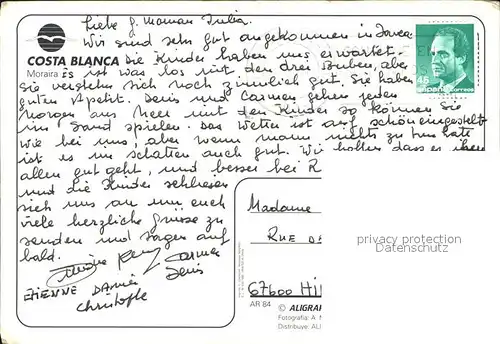 Liebe G. Maman Julia.
Wir sind sehr gut angekommen in Javea.
COSTA BLANCA
Die Kinder haben uns erwartet.
Moraira
Es ist was los mit den drei Buben, aber
sie verstehen sich noch ziemlich gut. Sie haben
guten Apetit. Denis und Carmen gehen jeden
Morgen ans Meer mit den Kinder so können sie
im Sand spielen. Das Wetter ist auf schön eingestellt
wie bei uns, aber wenn mann nichts zu tun hatt
ist es im Schatten auch gut. Wir hoffen dass es ihnen
allen gut geht, und besser bei R
und die Kinder schliesen
sich uns an um euch
viele herzliche Grüsse zu
senden und sagen auf
bald.
Carmen
Denis
ETIENNE DAMIEN
Christophe
45
España Correos
Madame
RUE D
67600 HI
privacy protection
watermark
AR 84
© ALIGRA
Fotografía: A. M
Distribuye: ALI